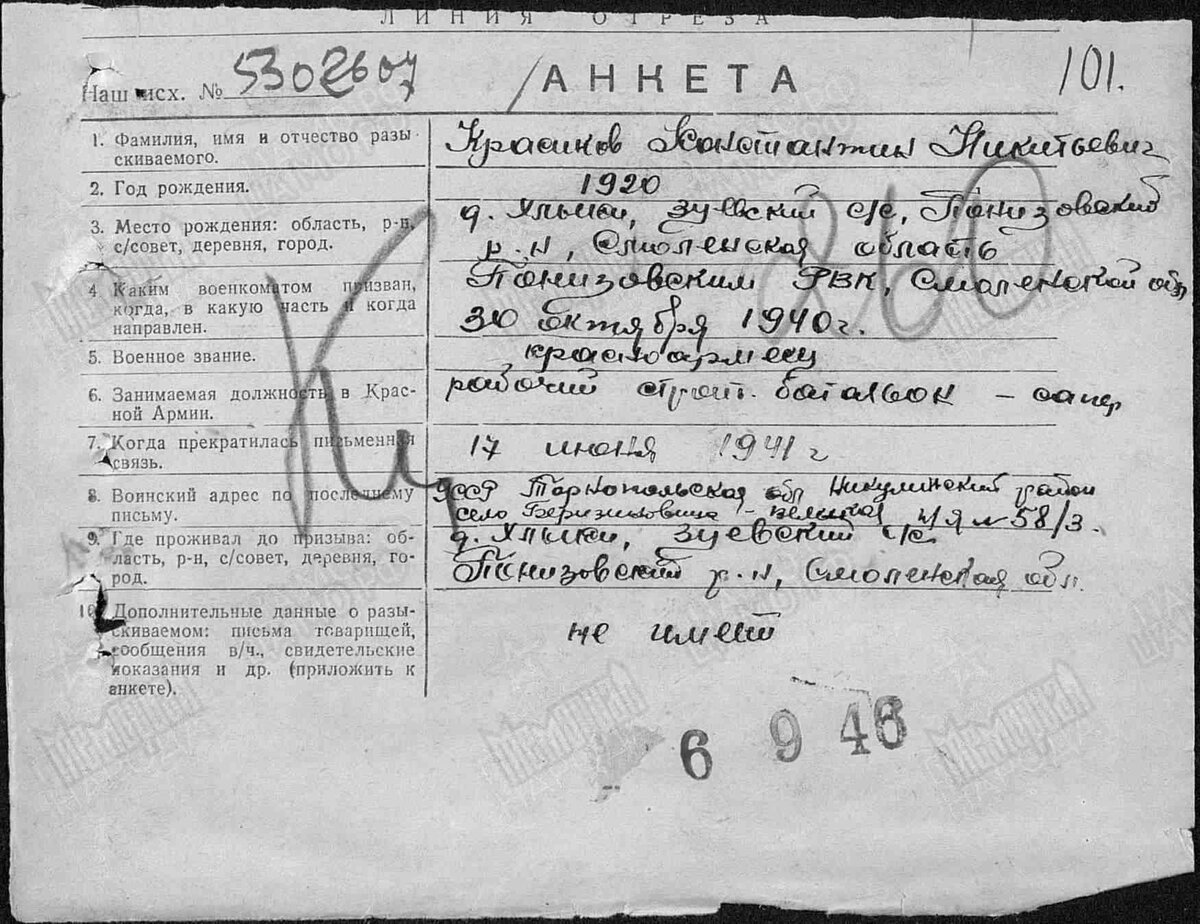 ЛИНИЯ ОТРЕЗА
Наш исх. № 5302607
АНКЕТА
101.
1. Фамилия, имя и отчество разы
скиваемого.
Красиков Константин Никитьевич
2. Год рождения.
1920
3. Место рождения: область, р-н,
с/совет, деревня, город.
д. Хлыки, Зуевский с/с, Понизовский
р.н, Смоленская область
4 Каким военкоматом призван,
когда, в какую часть и когда
направлен.
Понизовским РВК, Смоленской обл
30 октября 1940г.
5. Военное звание.
красноармеец
6. Занимаемая должность в Крас-
ной Армии.
рабочий строит. батальон - сапер
7. Когда прекратилась письменная
связь.
17 июня 1941 г
8. Воинский адрес по последнему
письму.
УССР Тарнопольская обл Микулинский район
село - великая п/я № 58/3.
9. Где проживал до призыва: об-
ласть, р-н, с/совет, деревня, го-
род.
д. Хлыки, Зуевский с/с
Понизовский р.н, Смоленская обл.
10 Дополнительные данные о разы-
скиваемом: письма товарищей,
сообщения в/ч., свидетельские
показания и др. (приложить к
анкете).
не имеет
260
6 9 46